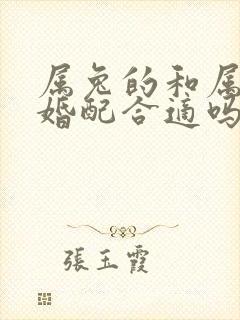 属兔的和属
婚配合适吗
張玉霞